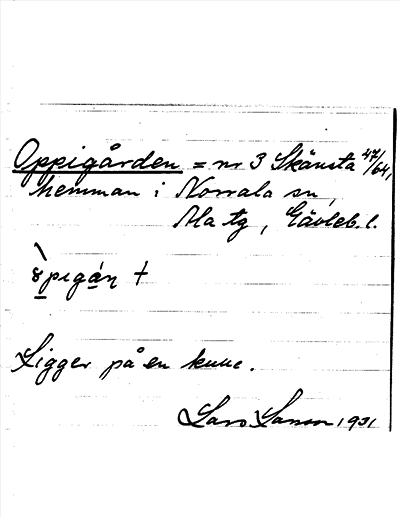 Oppigården = nr 3 Skänsta 47/64,
hemman i Norrala sn,
Ala tg, Gävleb. l.
Ligger på en kulle.
Lars Larson 1931